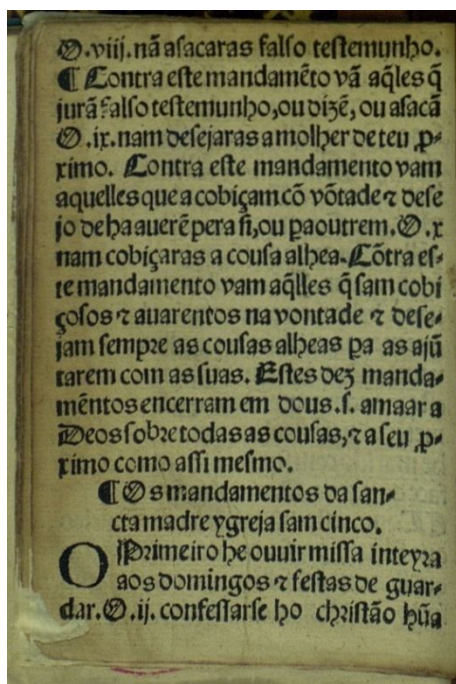 O .viij. nã asacaras falso testemunho.
¶ Contra este mandamẽto vã aq̃les q̃
jurã falso testemunho, ou dizẽ, ou asacã
O .ix. nam desejaras a molher de teu ꝓ⸗
ximo. Contra este mandamento vam
aquelles que a cobiçam cõ võtade ⁊ dese
jo de ha auerẽ pera si, ou ꝑa outrem. O .x
nam cobiçaras a cousa alhea. Cõtra es⸗
te mandamento vam aq̃lles q̃ sam cobi
çosos ⁊ auarentos na vontade ⁊ dese⸗
jam sempre as cousas alheas ꝑa as ajũ
tarem com as suas. Estes dez manda⸗
mẽntos encerram em dous .s. amaar a
Deos sobre todas as cousas, ⁊ a seu ꝓ⸗
ximo como assi mesmo.
¶ Os mandamentos da san⸗
cta madre ygreja sam cinco.
O Primeiro he ouuir missa inteyra
aos domingos ⁊ festas de guar⸗
dar. O .ij. confessarse ho christão hũa